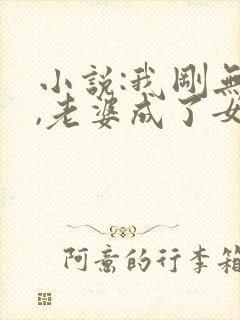 小說:我剛無
,老婆成了女
阿意的行李箱